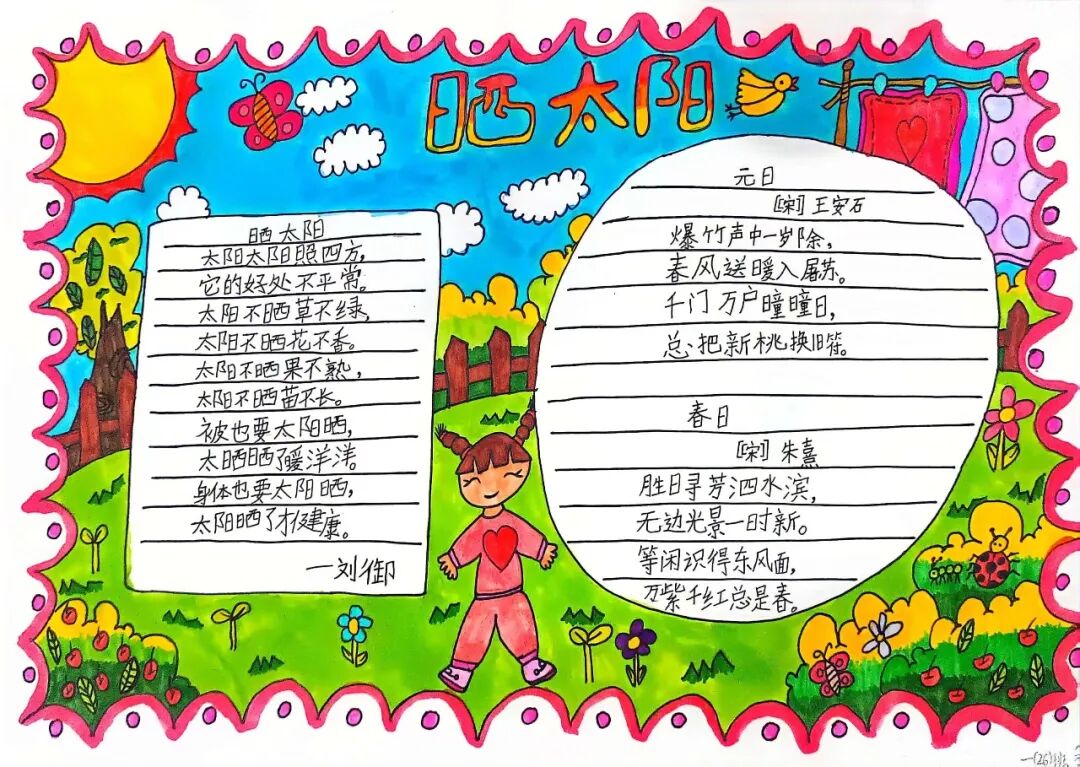 晒太阳
晒太阳
太阳太阳照四方,
它的好处不平常。
太阳不晒草不绿,
太阳不晒花不香。
太阳不晒果不熟,
太阳不晒苗不长。
被也要太阳晒,
太晒晒了暖洋洋。
身体也要太阳晒,
太阳晒了才健康。
一刘御
元日
[宋] 王安石
爆竹声中一岁除,
春风送暖入屠苏。
千门万户曈曈日,
总把新桃换旧符。
春日
[宋] 朱熹
胜日寻芳泗水滨,
无边光景一时新。
等闲识得东风面,
万紫千红总是春。
一(26)班